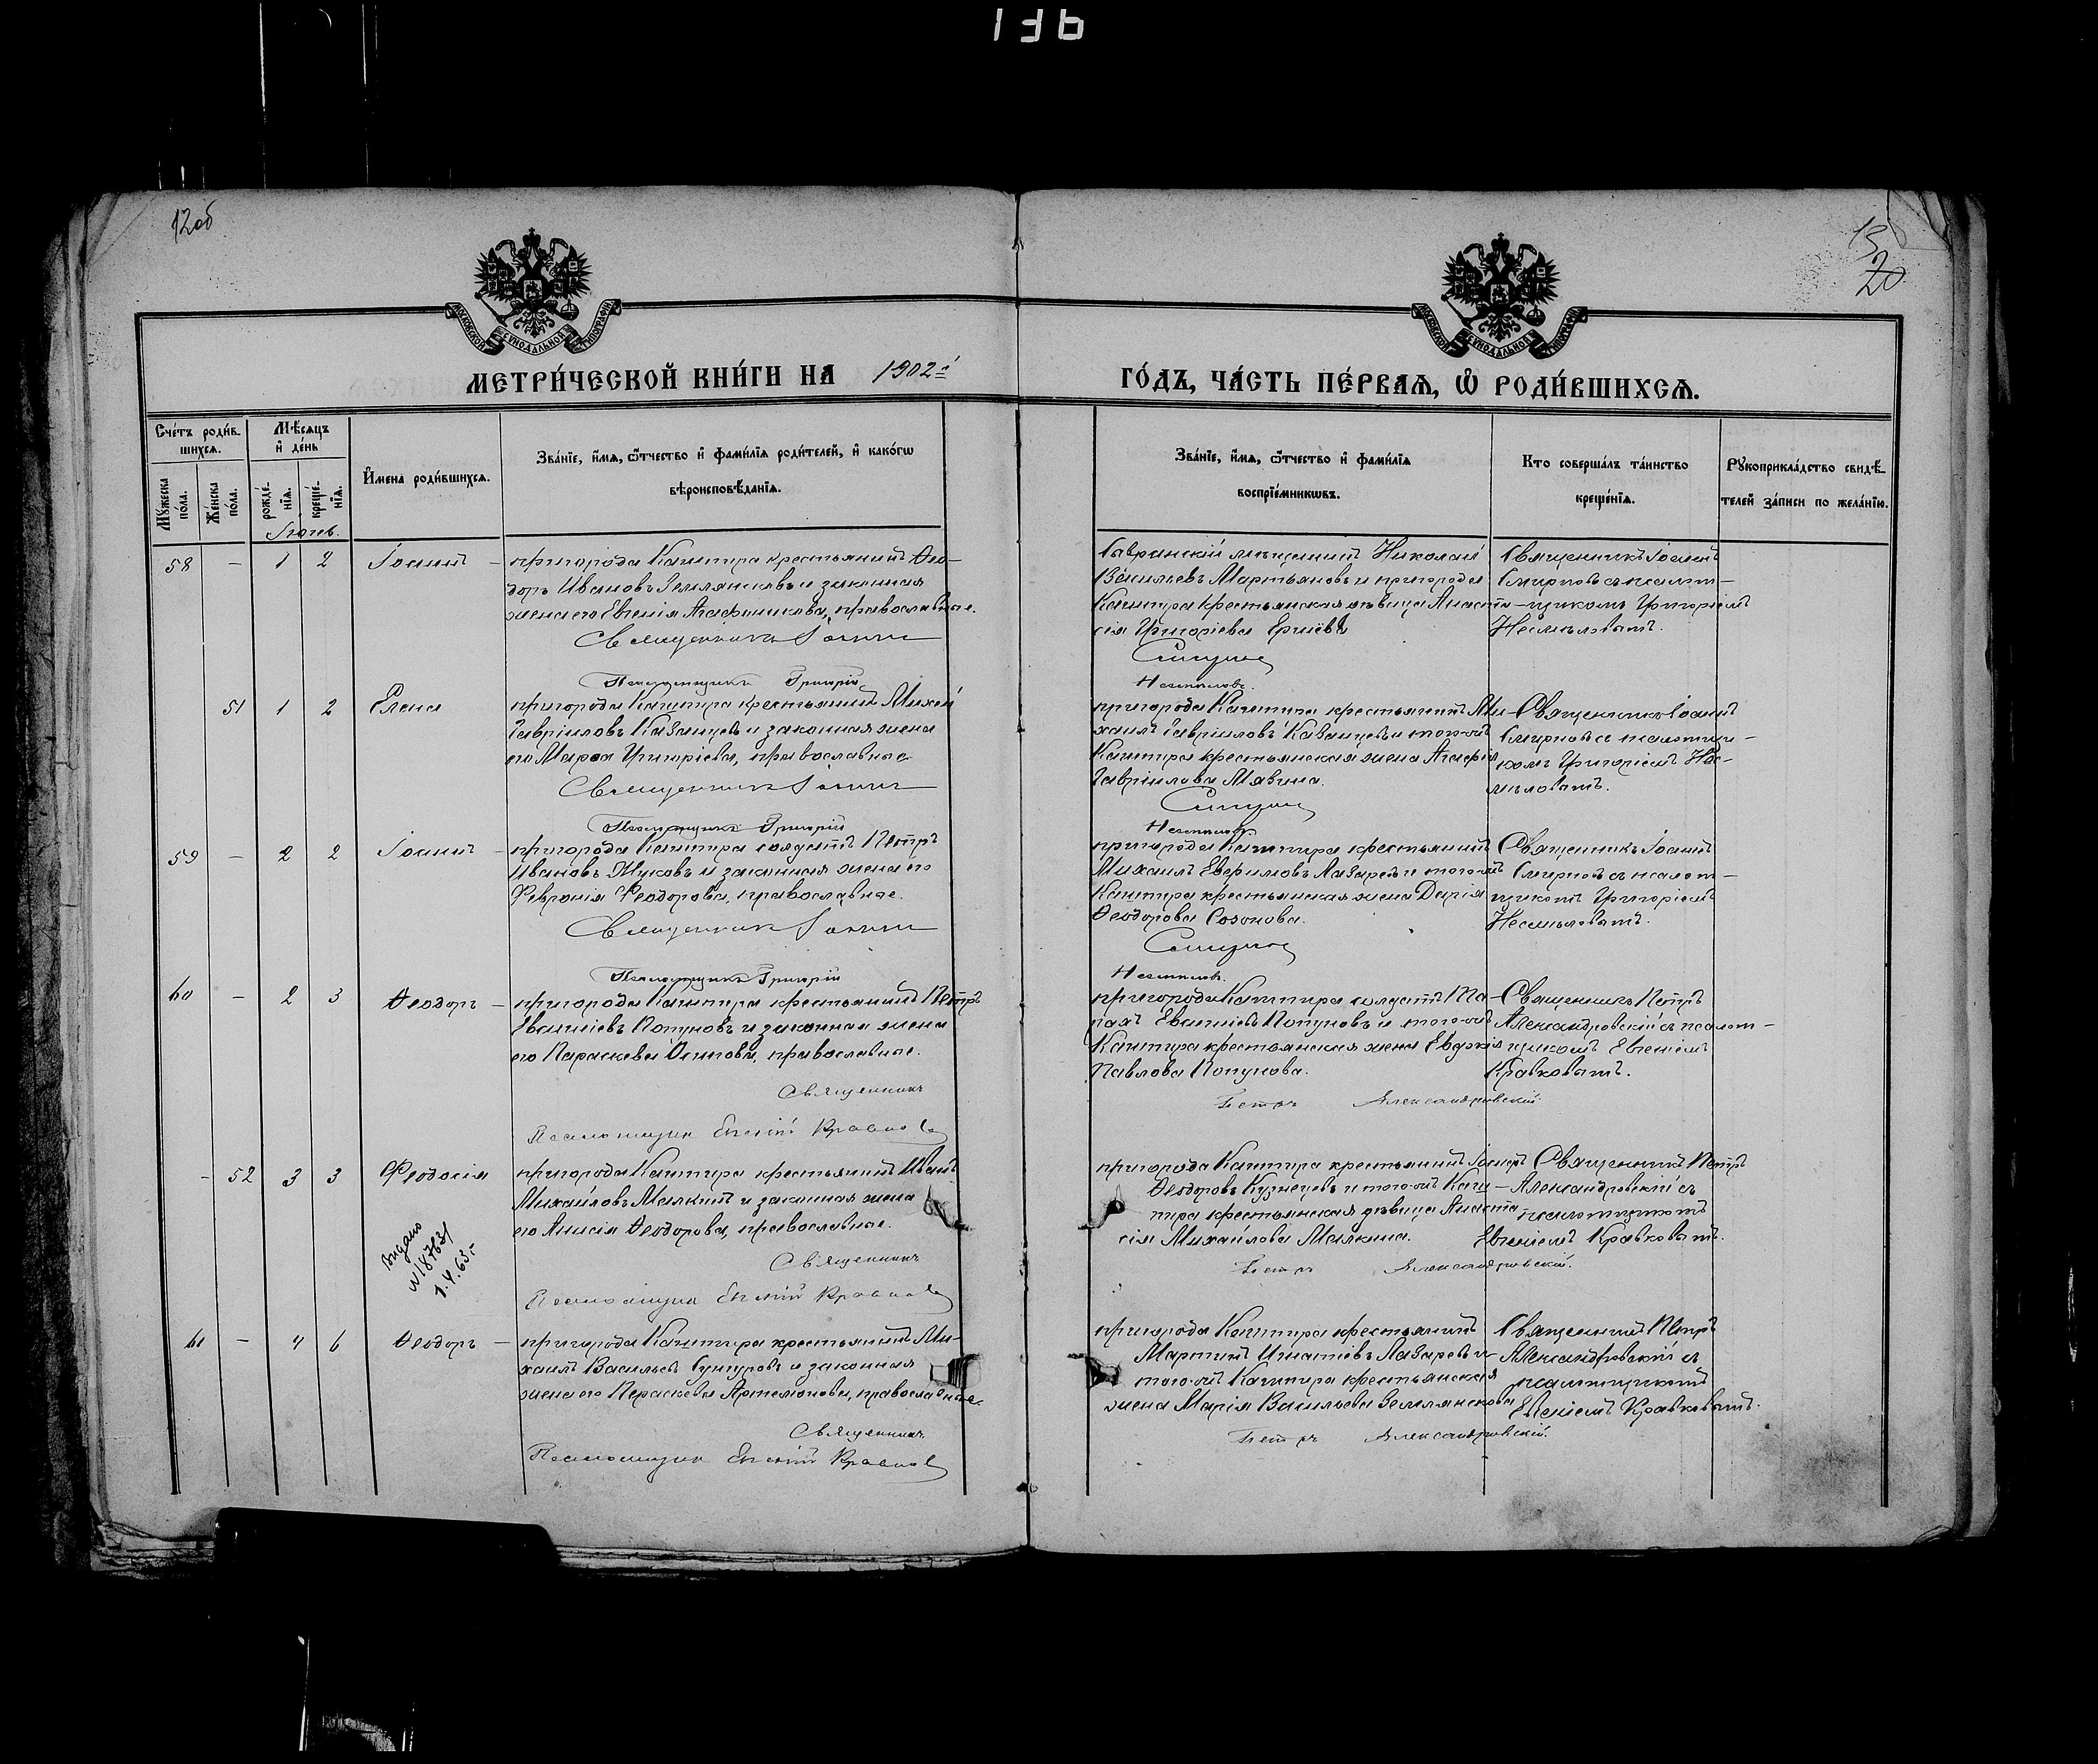 136
12об
15
20
МОСКОВСКОЙ СѴНОДАЛЬНОЙ ТИПОГРАФІИ
МОСКОВСКОЙ СѴНОДАЛЬНОЙ ТИПОГРАФІИ
МЕТРИ́ЧЕСКОЙ КНИ́ГИ НА 1902й
ГО́ДЪ, ЧА́СТЬ ПЕ́РВАѦ, Ѡ҆ РОДИ́ВШИХСѦ.
Сче́тъ роди́в-
шихсѧ.
Мѣ́сѧцъ
и҆ де́нь
И҆мена роди́вшихсѧ.
Зва́нїе, и҆́мѧ, ѻ҆́тчество и҆ фами́лїѧ роди́телей, и҆ како́гѡ
вѣроисповѣ́данїѧ.
Зва́нїе, и҆́мѧ, ѻ҆́тчество и҆ фами́лїѧ
воспрїе́мникѡвъ.
Кто соверша́лъ та́инство
креще́нїѧ.
Рꙋкоприкла́дство свидѣ́-
телей за́писи по жела́нїю.
Мꙋ́жеска
по́ла.
Же́нска
по́ла.
рожде́-
нїѧ.
креще́-
нїѧ.
Іюнь.
58 – 1 2 Іоаннъ – пригорода Каштира крестьянинъ Ѳео-
доръ Ивановъ Землянскавъ и законная
жена его Евгенія Агафоникова, православные.
Священникъ Іоаннъ
Псаломщикъ Григорій
Николай
Васильевъ Мартьяновъ и пригорода
Каштира крестьянская дѣвица Анаста-
сія Григоріева
Смирнов
Несмѣловъ.
Священникъ Іоаннъ
Смирновъ съ псалом-
щикомъ Григоріемъ
Несмѣловымъ.
51 1 2 Елена пригорода Каштира крестьянинъ
Гавріиловъ Казанцевъ и законная жена
его Марѳа Григоріева, православные
Священникъ Іоаннъ
Псаломщикъ Григорій
пригорода Каштира крестьянинъ Ми-
хаилъ Гавріиловъ Казанцевъ и того-жъ
Каштира крестьянская жена Агафія
Гавріилова Мявина.
Смирнов
Несмѣловъ
Священникъ Іоаннъ
Смирновъ съ псаломщи-
комъ Григоріемъ Нес-
мѣловымъ.
59 – 2 2 Іоаннъ – пригорода Каштира солдатъ Петръ
Ивановъ Жуковъ и законная жена его
Февронія Ѳеодорова, православные.
Священникъ Іоаннъ
Псаломщикъ Григорій
пригорода Каштира крестьянинъ
Михаилъ Евфимовъ Лазаревъ и того-жъ
Каштира крестьянская жена Дарія
Ѳеодорова Созонова.
Смирнов
Несмѣловъ.
Священникъ Іоаннъ
Смирновъ съ псалом-
щикомъ Григоріемъ
Несмѣловымъ.
60 – 2 3 Ѳеодоръ – пригорода Каштира крестьянинъ Петръ
Копуновъ и законная жена
его Параскева Осипова, православные.
Священникъ
Псаломщикъ Евгеній Кравков
пригорода Каштира солдатъ Та-
расъ Копуновъ и того-жъ
Каштира крестьянская жена Евдокія
Павлова Копунова.
Петръ Александровскій.
Священникъ Петръ
Александровскій съ псалом-
щикомъ Евгеніемъ
Кравковымъ.
– 52 3 3 Феодосія пригорода Каштира крестьянинъ Иванъ
Михайловъ Малкинъ и законная жена
его Анисія Ѳеодорова, православные.
Священникъ
Псаломщикъ Евгеній Кравков
Видано
№187631
1.4.65.
пригорода Каштира крестьянинъ Іоаннъ
Ѳеодоровъ Кузнецовъ и того-жъ Каш-
тира крестьянская дѣвица Анаста-
сія Михайлова Малкина.
Петръ Александровскій.
Священникъ Петръ
Александровскій съ
псаломщикомъ
Евгеніемъ Кравковымъ.
61 – 4 6 Ѳеодоръ – пригорода Каштира крестьянинъ Ми-
хаилъ Васильевъ Сунгуровъ и законная
жена его Параскева Артемонова, православные.
Священникъ
Псаломщикъ Евгеній Кравков
пригорода Каштира крестьянинъ
Мартинъ Игнатіевъ Лазаревъ и
того-жъ Каштира крестьянская
жена Марія Васильева Землянскова
Петръ Александровскій.
Священникъ Петръ
Александровскій съ
псаломщикомъ
Евгеніемъ Кравковымъ.